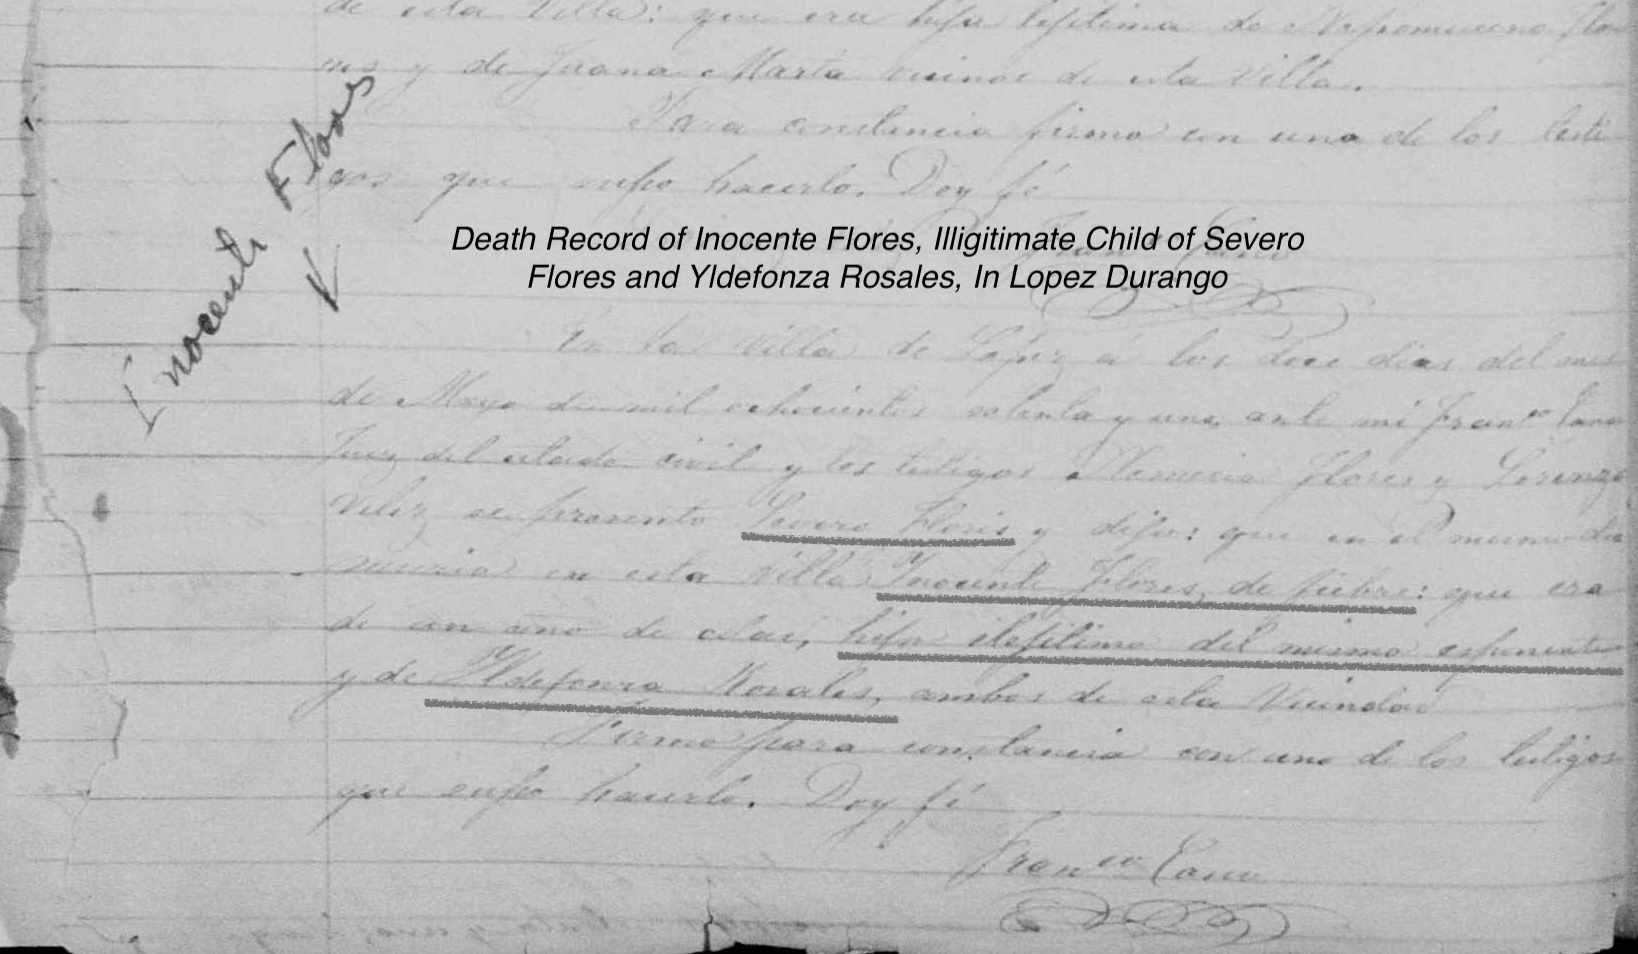 de esta Villa: que era hija lejitima de Nepomuceno Flo
res y de Juana Marta vecinos de esta Villa.
Para constancia firmo con uno de los testi
gos que supo hacerlo. Doy fé
Inocente Flores
Death Record of Inocente Flores, Illigitimate Child of Severo
Flores and Yldefonza Rosales, In Lopez Durango
En la Villa de López á los doce dias del mes
de Mayo de mil ochocientos setenta y uno, ante mi Franco Cano
Juez del estado civil y los testigos Flores y Lorenzo
Velez se presento Severo Flores y dijo: que en el mismo dia
murió en esta Villa Inocente Flores, de fiebre: que era
de un año de edad, hijo ilejitimo del mismo esponente
y de Yldefonza Rosales, ambos de esta Vecindad
Firmo para constancia con uno de los testigos
que supo hacerlo. Doy fé
Franco Cano